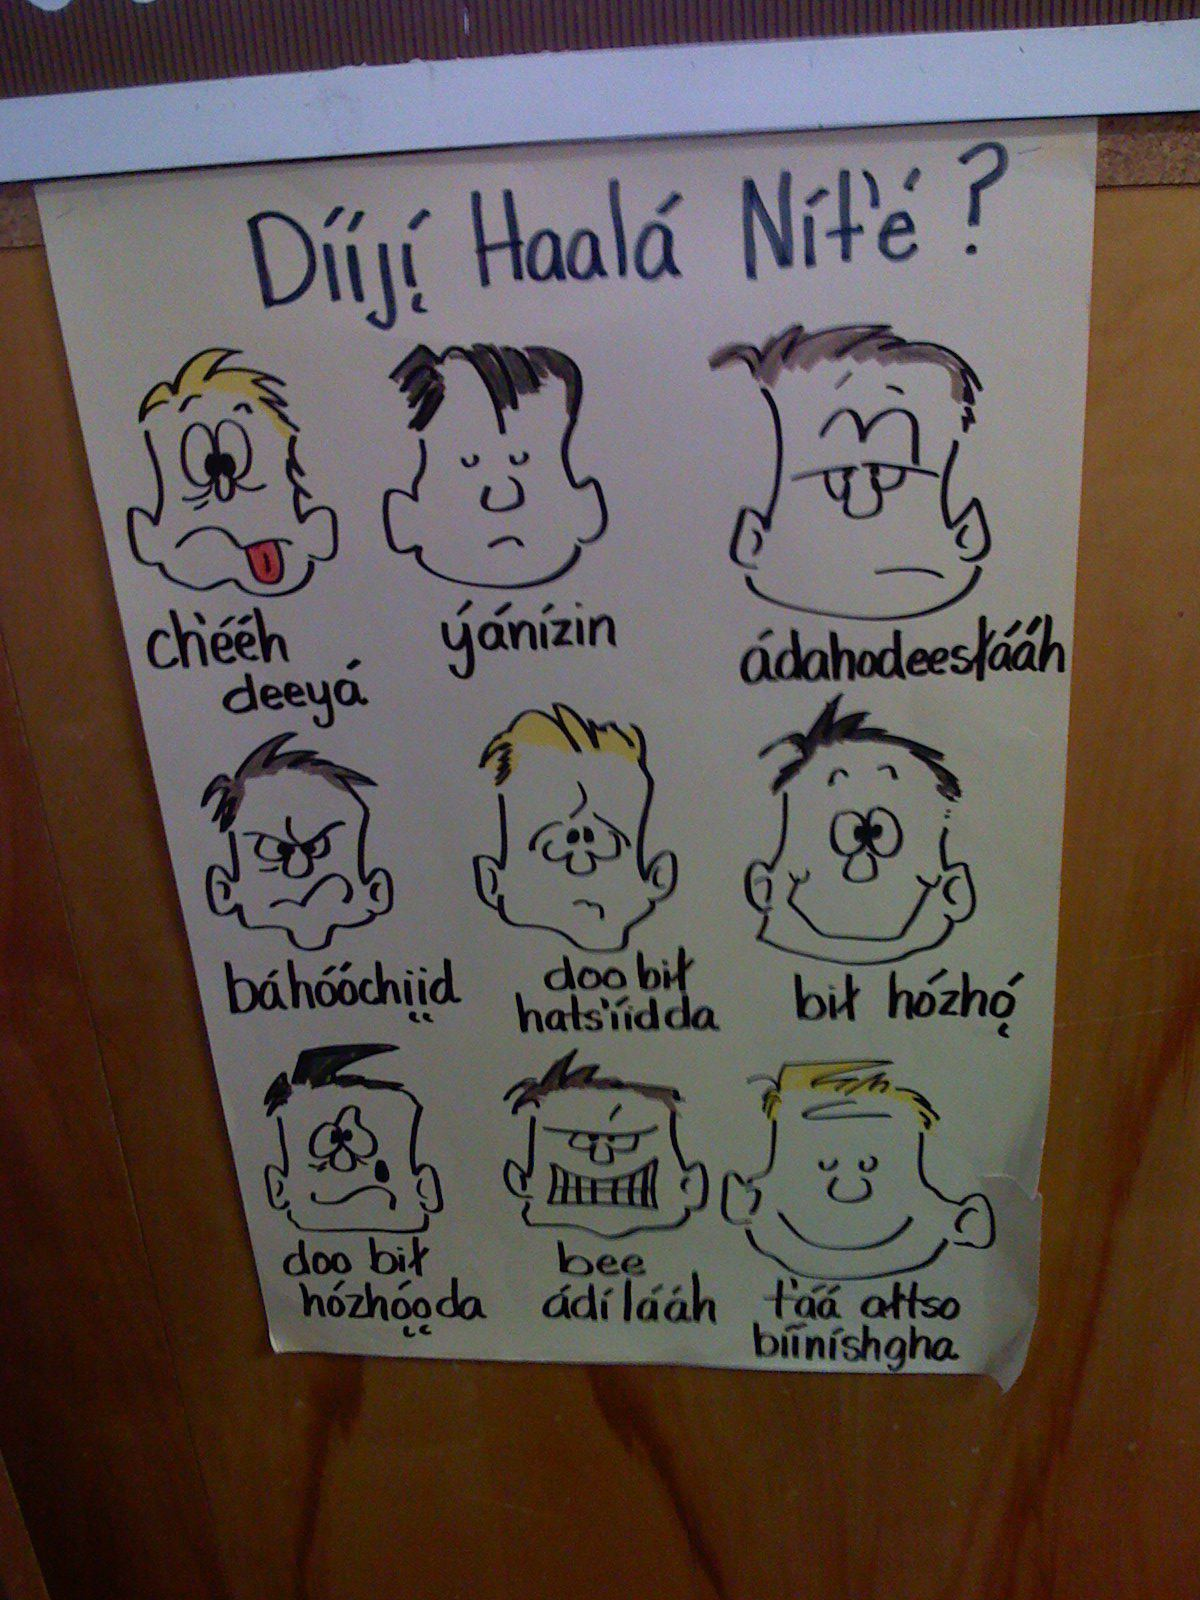 Dííjį́ Haalá Nít'é?
ch'ééh
deeyá
ýánízin
ádahodeesłááh
báhóóchįįd
doo bił
hats'íídda
bił hózhǫ́
doo bił
hózhǫ́ǫda
bee
ádílááh
t'áá ałtso
bííníshgha